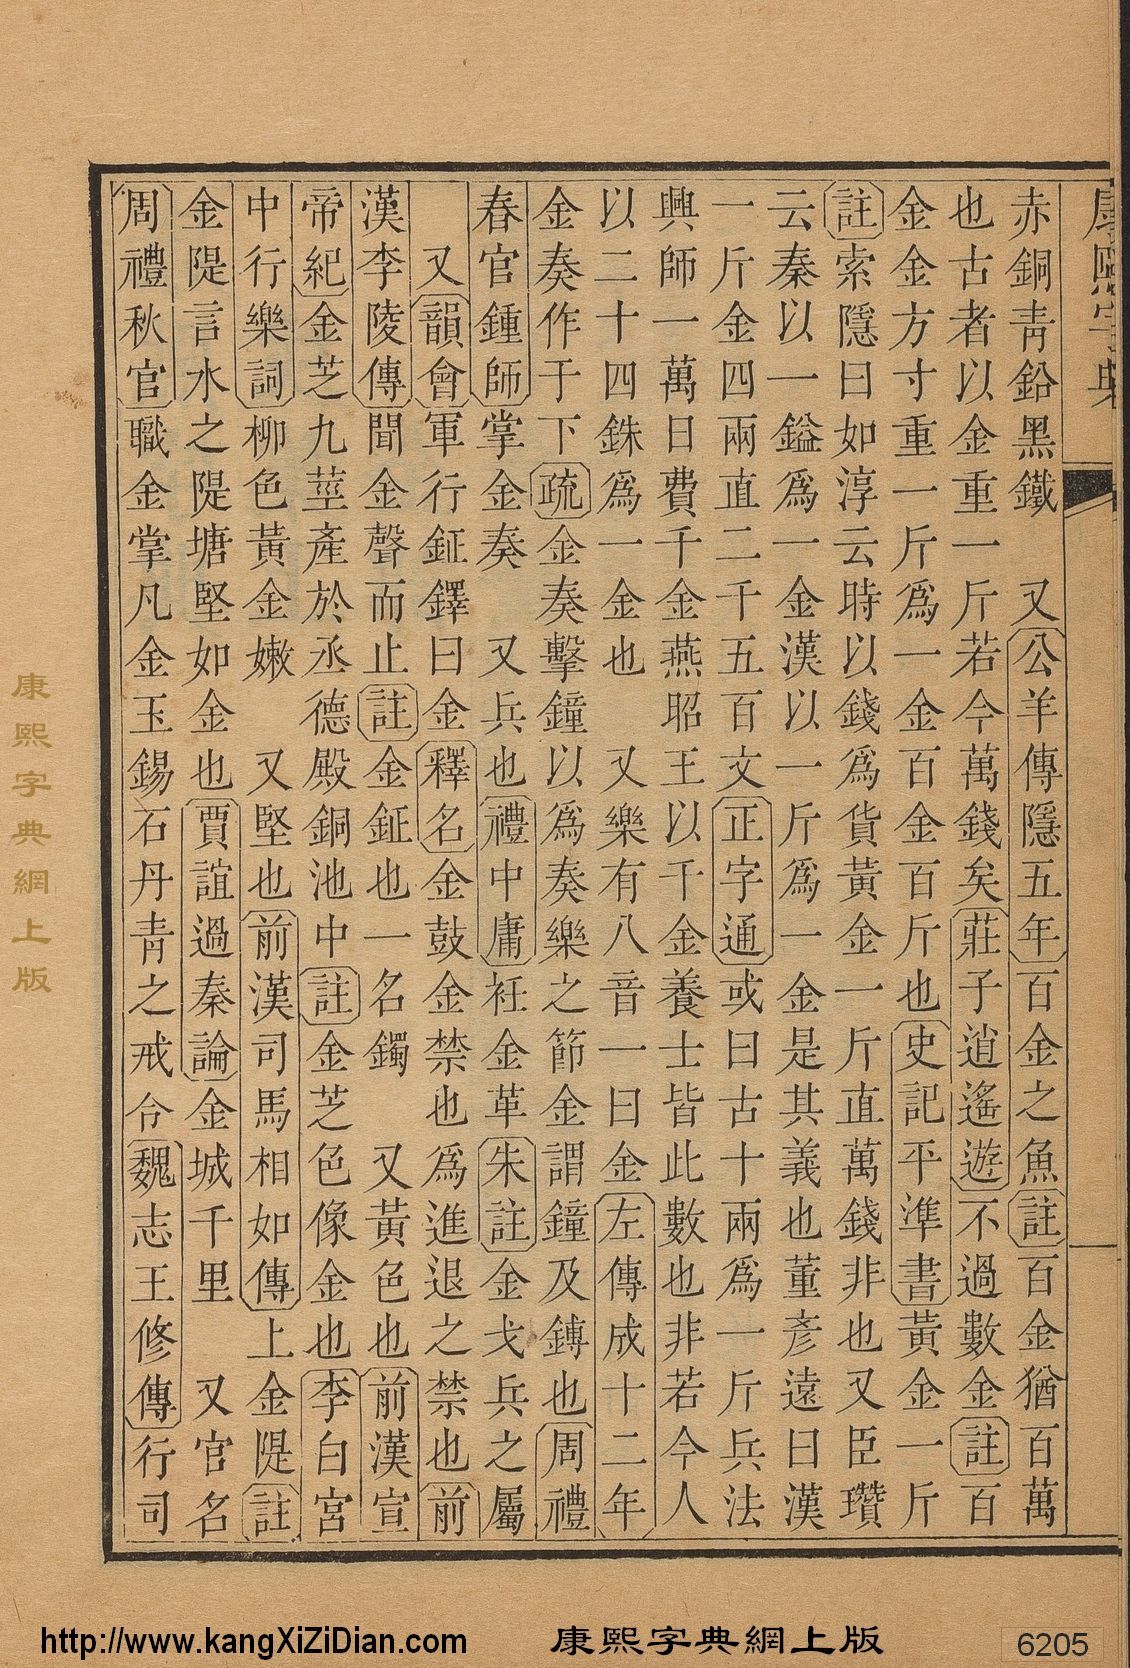 康熙字典
赤銅青鉛黑鐵　又公羊傳隱五年百金之魚註百金猶百萬
也古者以金重一斤若今萬錢矣莊子逍遙遊不過數金註百
金金方寸重一斤爲一金百金百斤也史記平準書黃金一斤
註索隱曰如淳云時以錢爲貨黃金一斤直萬錢非也又臣瓚
云秦以一鎰爲一金漢以一斤爲一金是其義也董彥遠曰漢
一斤金四兩直二千五百文正字通或曰古十兩爲一斤兵法
興師一萬日費千金燕昭王以千金養士皆此數也非若今人
以二十四銖爲一金也　又樂有八音一曰金左傳成十二年
金奏作于下疏金奏擊鐘以爲奏樂之節金謂鐘及鎛也周禮
春官鍾師掌金奏　又兵也禮中庸衽金革朱註金戈兵之屬
　又韻會軍行鉦鐸曰金釋名金鼓金禁也爲進退之禁也前
漢李陵傳聞金聲而止註金鉦也一名鐲　又黃色也前漢宣
帝紀金芝九莖產於丞德殿銅池中註金芝色像金也李白宮
中行樂詞柳色黃金嫩　又堅也前漢司馬相如傳上金隄註
金隄言水之隄塘堅如金也賈誼過秦論金城千里　又官名
周禮秋官職金掌凡金玉錫石丹青之戒令魏志王修傳行司
康熙字典網上版
http://www.kangXiZiDian.com
康熙字典網上版
6205